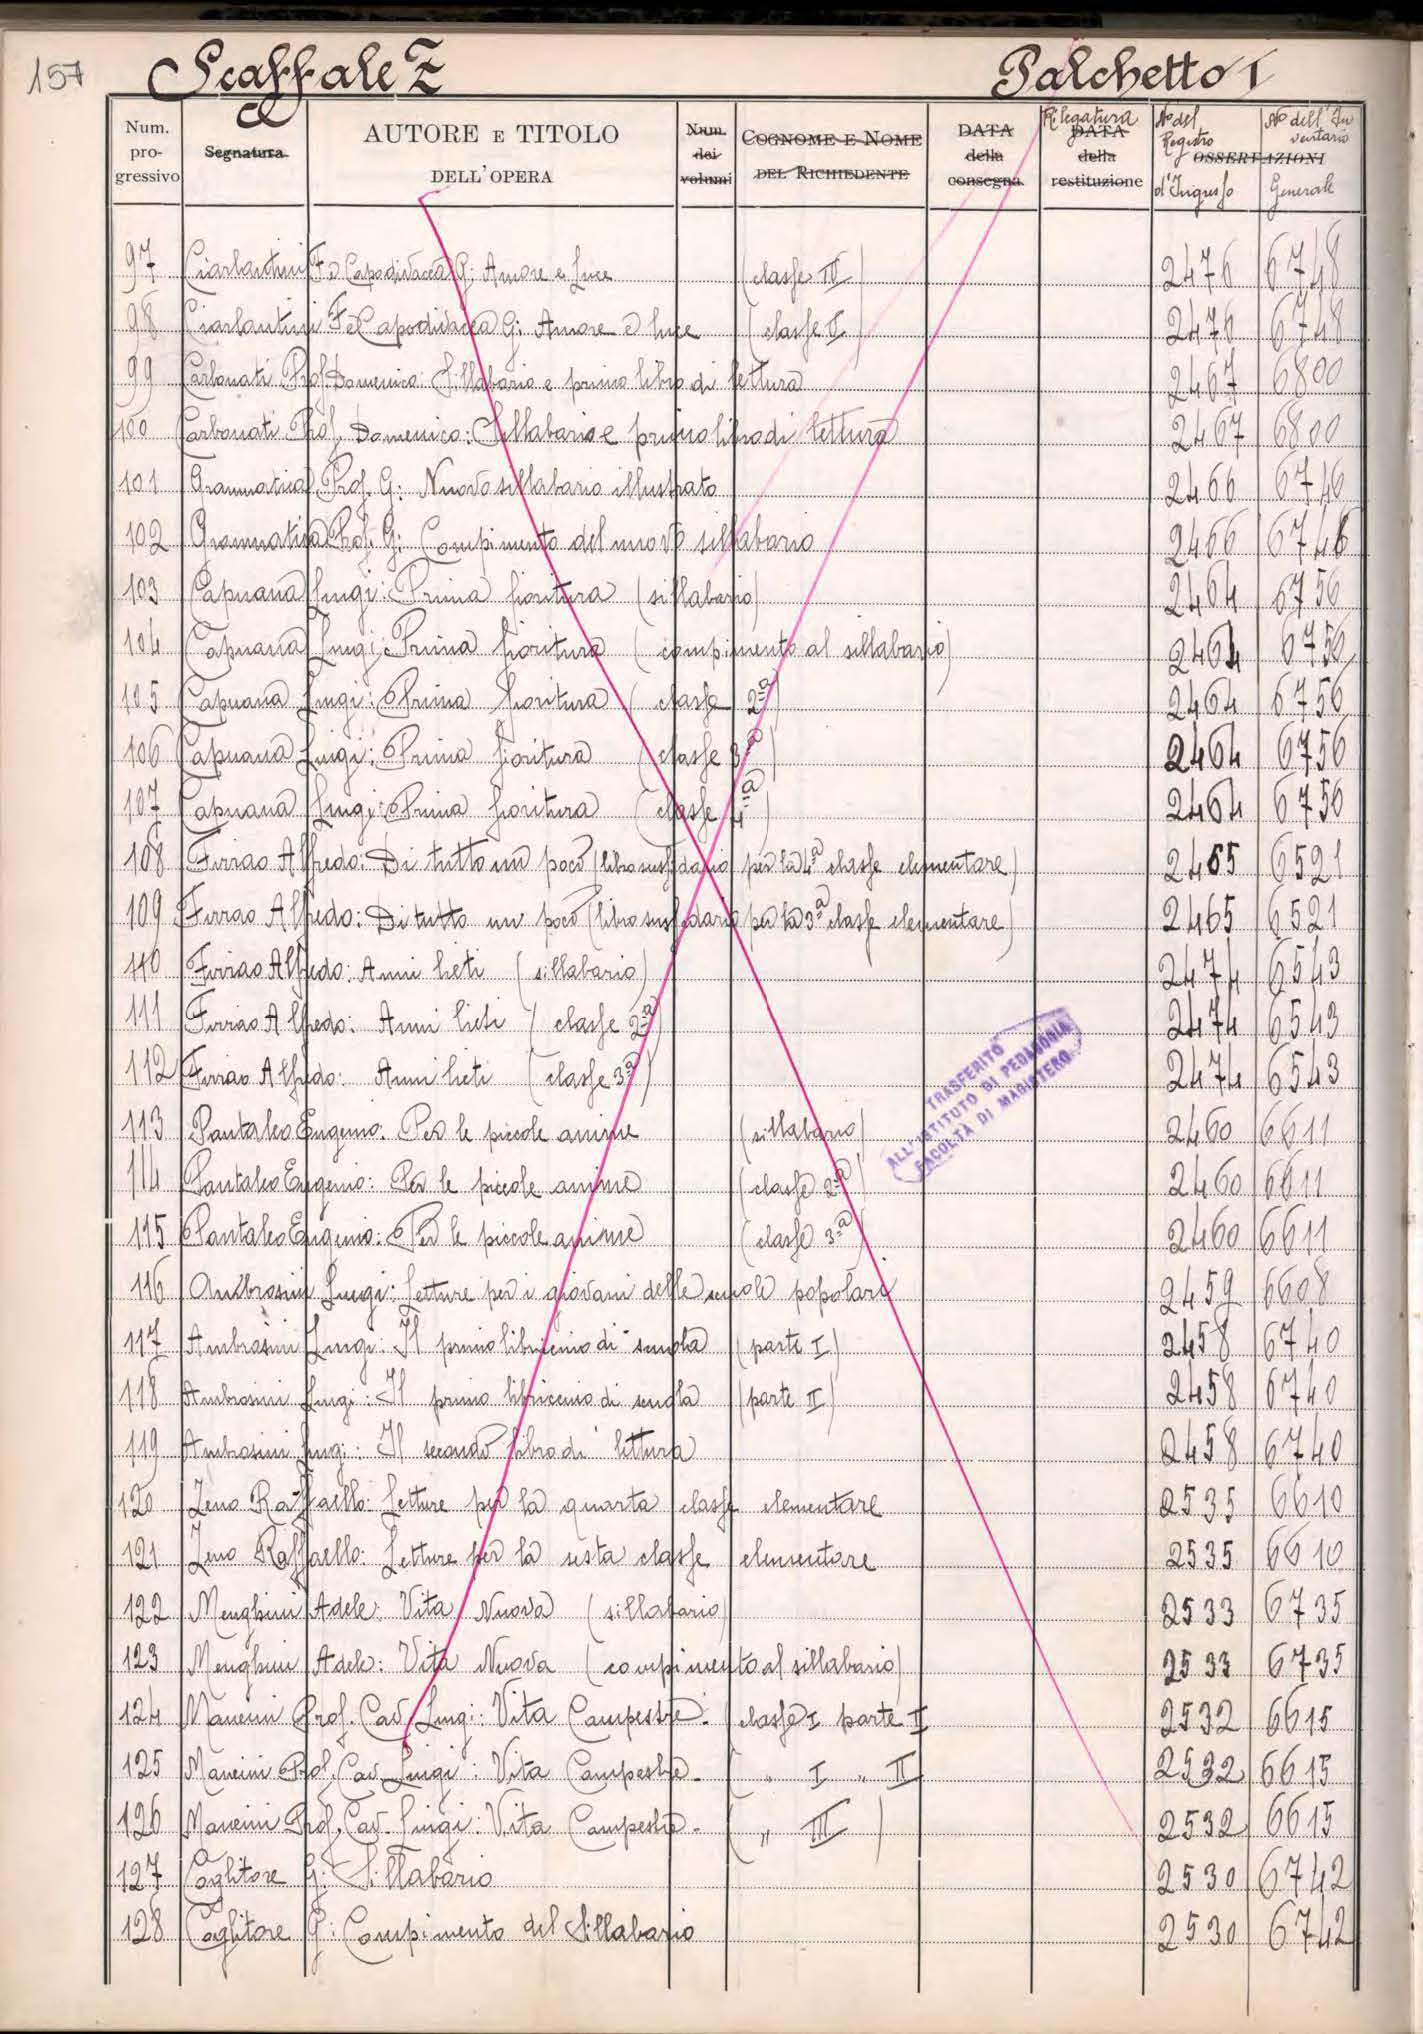 157 Scaffale Z Palchetto I
Num. progressivo Segnatura AUTORE E TITOLO DELL'OPERA Num. dei volumi COGNOME E NOME DEL RICHIEDENTE DATA della consegna Rilegatura DATA della restituzione OSSERVAZIONI No del Registro d'Ingresso No dell'Inventario Generale
97 Ciarlantini F. e Capodivacca G: Amore e luce (classe IV) 2476 6748
98 Ciarlantini F. e Capodivacca G: Amore e luce (classe V) 2476 6748
99 Carbonati Prof. Domenico: Sillabario e primo libro di lettura 2467 6800
100 Carbonati Prof. Domenico: Sillabario e primo libro di lettura 2467 6800
101 Grammatica Prof. G: Nuovo sillabario illustrato 2466 6746
102 Grammatica Prof. G: Compimento del nuovo sillabario 2466 6746
103 Capuana Luigi: Prima fioritura (sillabario) 2464 6756
104 Capuana Luigi: Prima fioritura (compimento al sillabario) 2464 6756
105 Capuana Luigi: Prima fioritura (classe 2a) 2464 6756
106 Capuana Luigi: Prima fioritura (classe 3a) 2464 6756
107 Capuana Luigi: Prima fioritura (classe 4a) 2464 6756
108 Firrao Alfredo: Di tutto un poco (libro sussidario per la 4a classe elementare) 2465 6521
109 Firrao Alfredo: Di tutto un poco (libro sussidario per la 3a classe elementare) 2465 6521
110 Firrao Alfredo: Anni lieti (sillabario) 2474 6543
111 Firrao Alfredo: Anni lieti (classe 2a) 2474 6543
112 Firrao Alfredo: Anni lieti (classe 3a) 2474 6543
TRASFERITO
ALL'ISTITUTO DI PEDAGOGIA
FACOLTÀ DI MAGISTERO
113 Pantaleo Eugenio: Per le piccole anime (sillabario) 2460 6611
114 Pantaleo Eugenio: Per le piccole anime (classe 2a) 2460 6611
115 Pantaleo Eugenio: Per le piccole anime (classe 3a) 2460 6611
116 Ambrosini Luigi: Letture per i giovani delle scuole popolari 2459 6608
117 Ambrosini Luigi: Il primo libriccino di scuola (parte I) 2458 6740
118 Ambrosini Luigi: Il primo libriccino di scuola (parte II) 2458 6740
119 Ambrosini Luigi: Il secondo libro di lettura 2458 6740
120 Zeno Raffaello: Letture per la quarta classe elementare 2535 6610
121 Zeno Raffaello: Letture per la sesta classe elementare 2535 6610
122 Menghini Adele: Vita Nuova (sillabario) 2533 6735
123 Menghini Adele: Vita Nuova (compimento al sillabario) 2533 6735
124 Mancini Prof. Cav. Luigi: Vita Campestre. (classe I parte I 2532 6615
125 Mancini Prof. Cav. Luigi: Vita Campestre. ( " I " II 2532 6615
126 Mancini Prof. Cav. Luigi: Vita Campestre. ( " III ) 2532 6615
127 Caglitore G: Sillabario 2530 6742
128 Caglitore G: Compimento del Sillabario 2530 6742